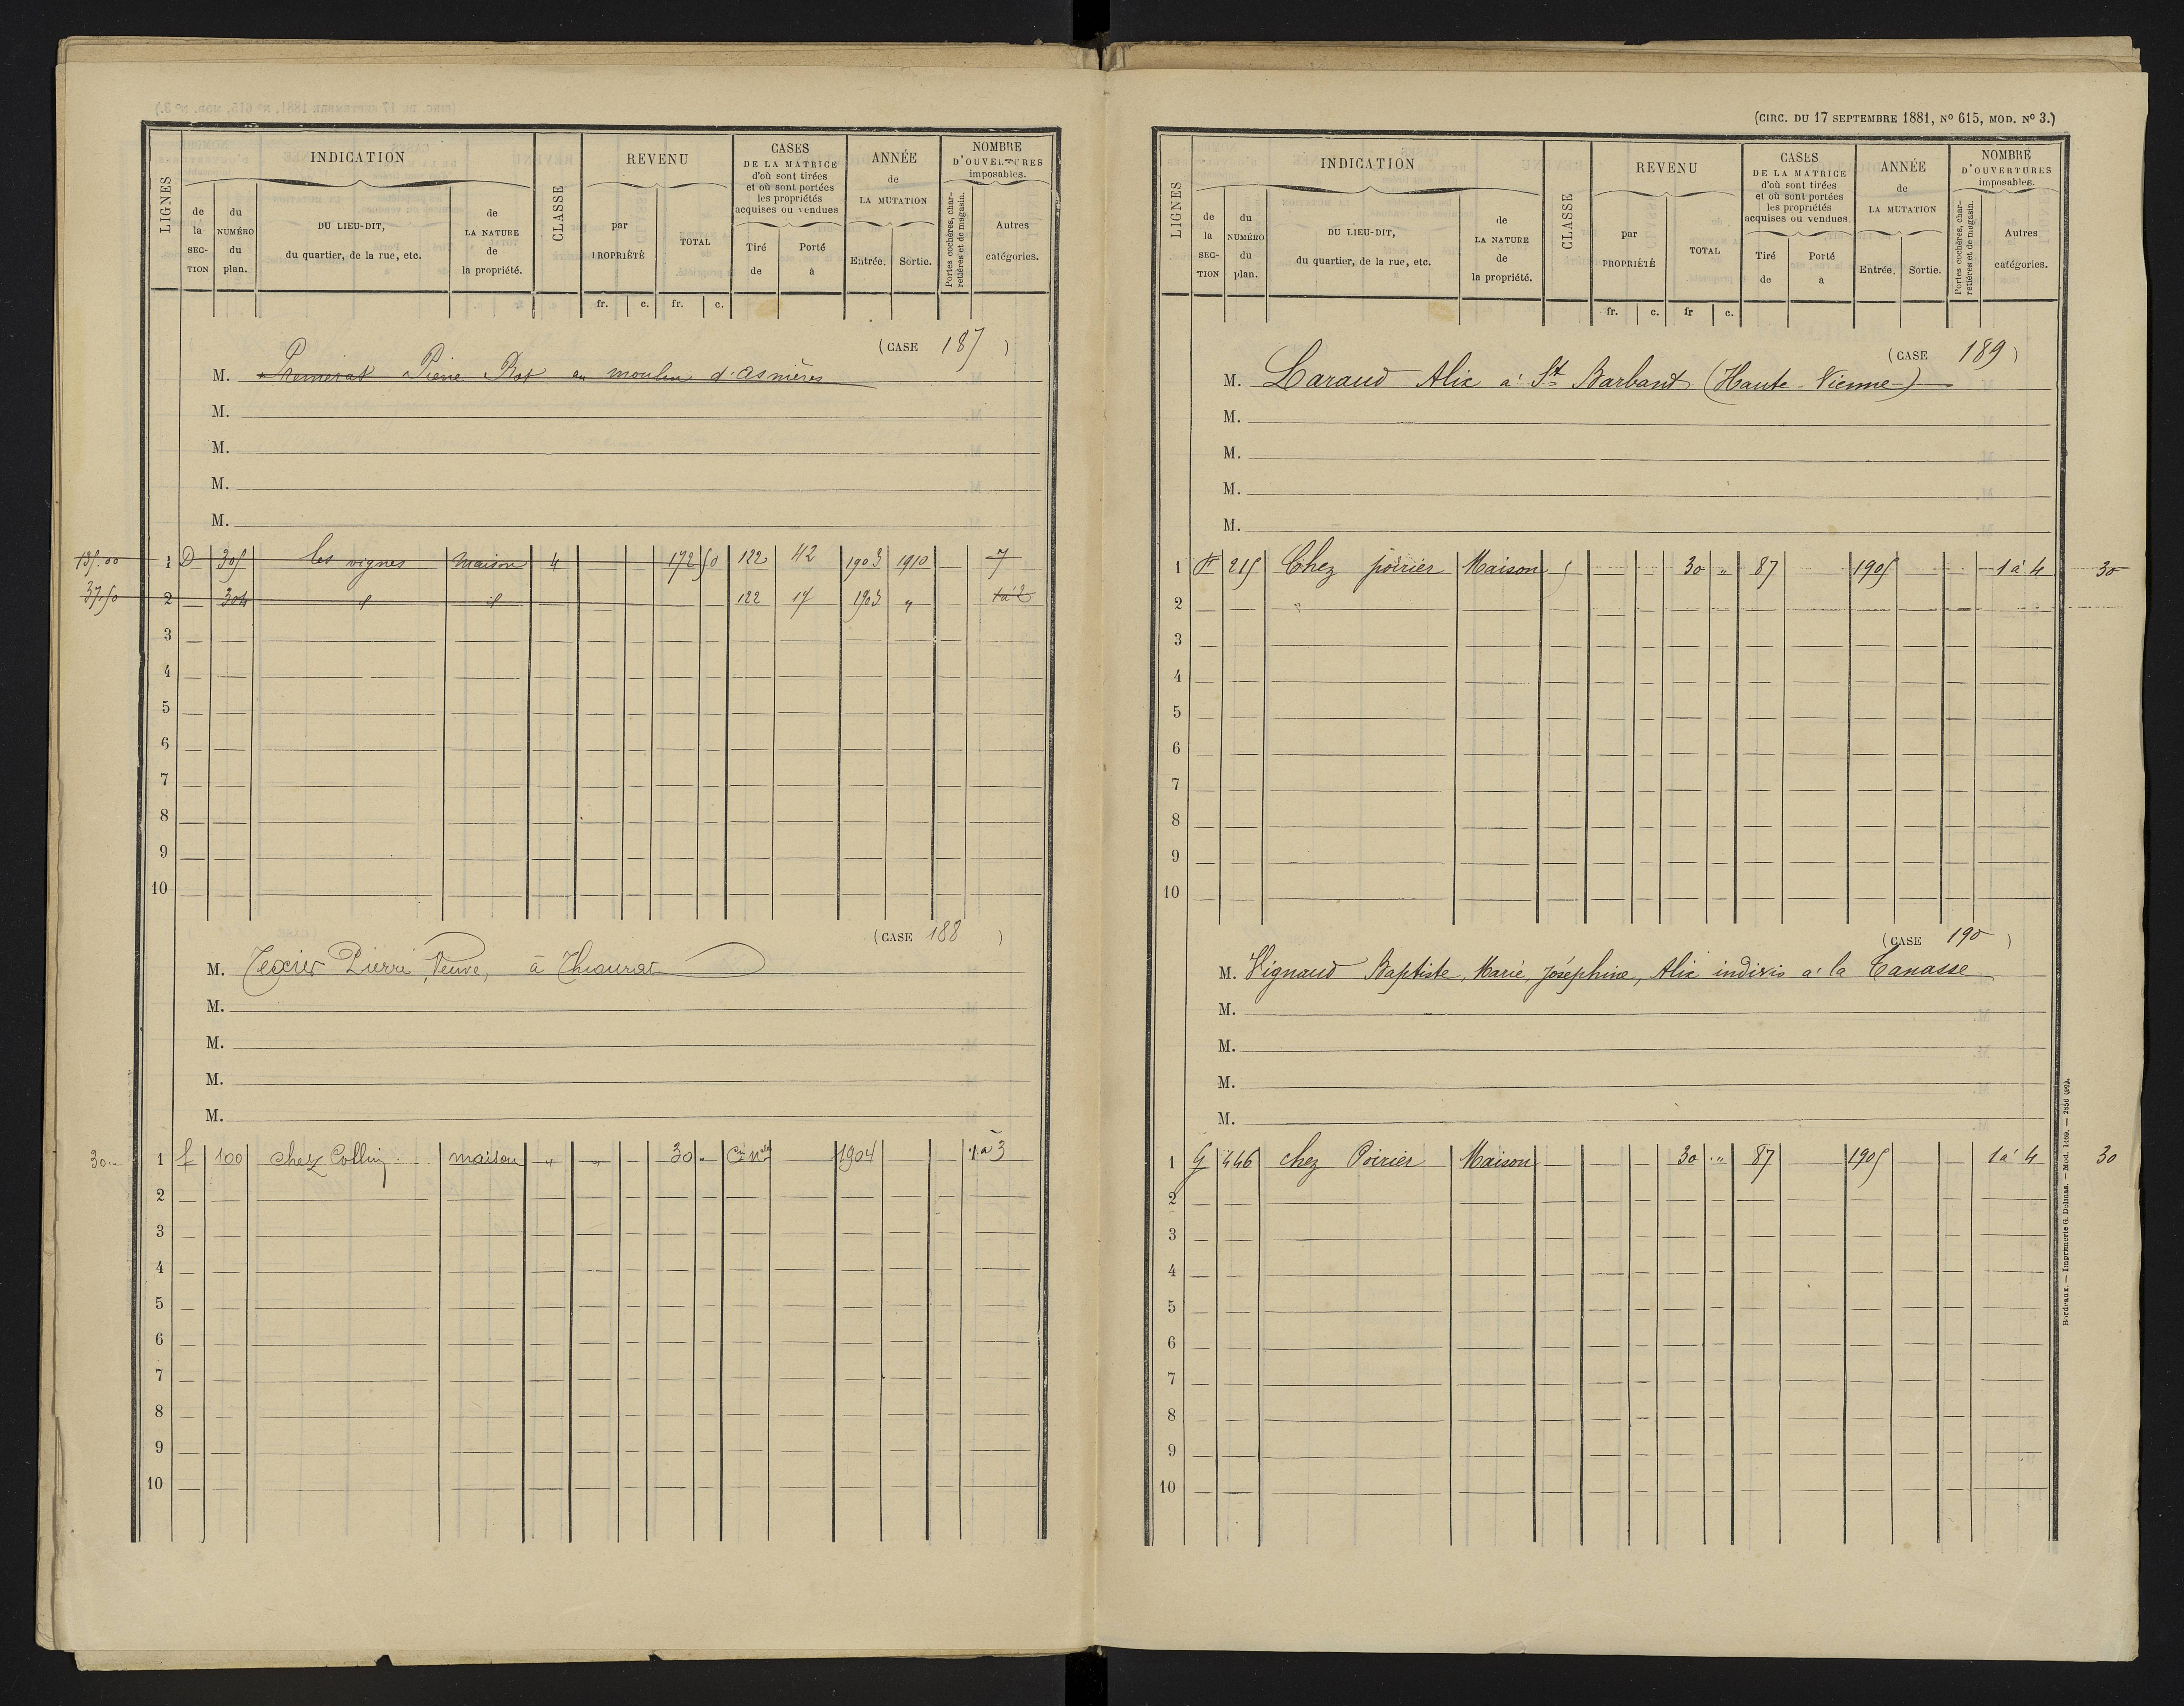 LIGNES
INDICATION
de la SECTION
du NUMÉRO du plan.
DU LIEU-DIT, du quartier, de la rue, etc.
de LA NATURE de la propriété.
CLASSE
REVENU
par PROPRIÉTÉ
TOTAL
fr. c. fr. c.
CASES DE LA MATRICE d'où sont tirées et où sont portées les propriétés acquises ou vendues
Tiré de
Porté à
ANNÉE de LA MUTATION
Entrée. Sortie.
NOMBRE D'OUVERTURES imposables.
Portes cochères, charretières et de magasin.
Autres catégories.
(CASE 187)
M. Pierre au moulin d'asnières
M.
M.
M.
M.
135.00 1 D 305 les vignes maison 4 172 50 122 112 1903 1910 7
37.50 2 304 id id 122 17 1903 " 1 à 2
3
4
5
6
7
8
9
10
(CASE 188)
M. Texier Pierre Veuve, à
M.
M.
M.
M.
30.- 1 f 100 chez Collin maison " " 30 " 1904 1 à 3
2
3
4
5
6
7
8
9
10
(CIRC. DU 17 SEPTEMBRE 1881, No 615, MOD. No 3.)
LIGNES
INDICATION
de la SECTION
du NUMÉRO du plan.
DU LIEU-DIT, du quartier, de la rue, etc.
de LA NATURE de la propriété.
CLASSE
REVENU
par PROPRIÉTÉ
TOTAL
fr. c. fr c.
CASES DE LA MATRICE d'où sont tirées et où sont portées les propriétés acquises ou vendues.
Tiré de
Porté à
ANNÉE de LA MUTATION
Entrée. Sortie.
NOMBRE D'OUVERTURES imposables.
Portes cochères, charretières et de magasin.
Autres catégories.
(CASE 189)
M. Laraud Alix à St Barbant (Haute-Vienne)
M.
M.
M.
M.
1 215 Chez poirier Maison 5 30 " 87 1905 1 à 4 30
2 "
3
4
5
6
7
8
9
10
(CASE 190)
M. Vignaud Baptiste, Marie, Joséphine, Alix indivis à la Tanasse
M.
M.
M.
M.
1 G 446 chez Poirier Maison 30 " 87 1905 1 à 4 30
2
3
4
5
6
7
8
9
10
Bordeaux. — Imprimerie G. Delmas. — Mod. 1469. — 2856 (99).